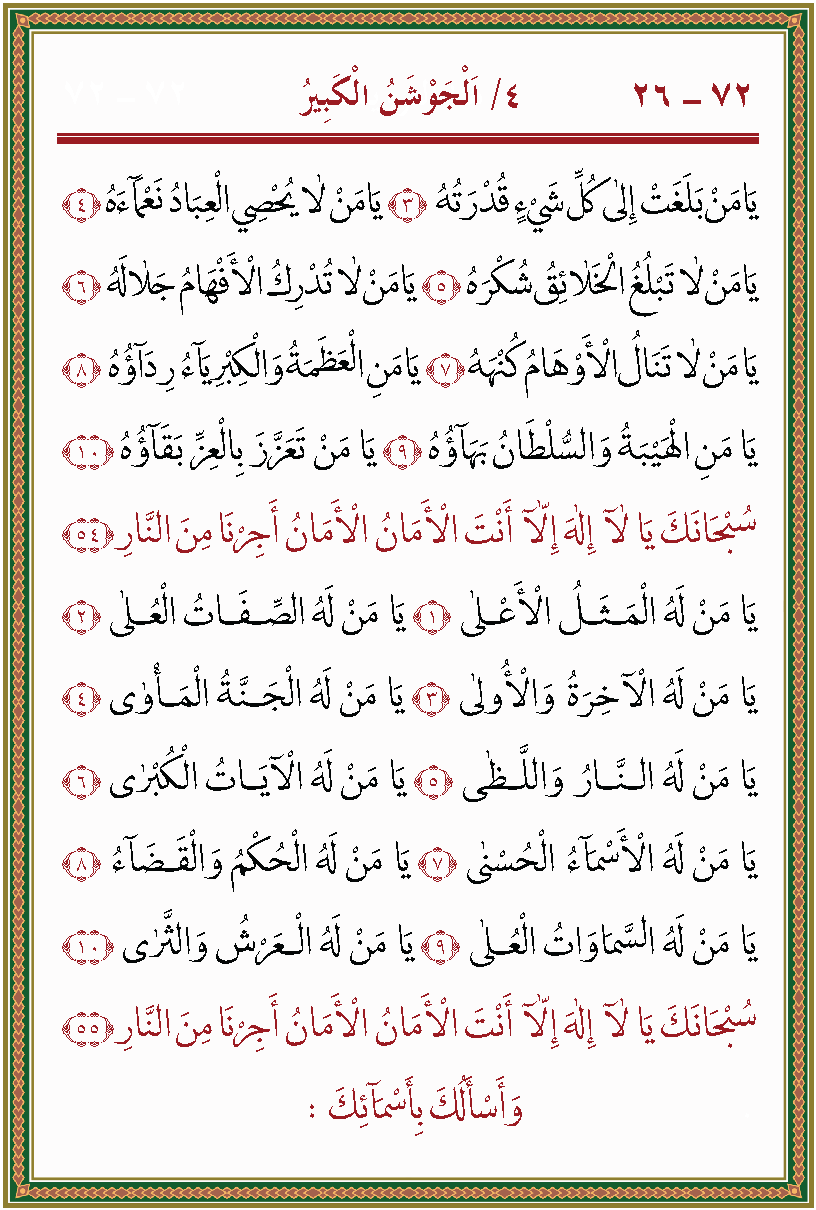 ٧٢ – ٢٦ ٤/ اَلْجَوْشَنُ الْكَبِيرُ ٧٢ – ٧٢
يَامَنْ بَلَغَتْ إِلٰى كُلِّ شَيْءٍ قُدْرَتُهُ ﴿٣﴾ يَامَنْ لٰا يُحْصِي الْعِبَادُ نَعْمَآءَهُ ﴿٤﴾
يَامَنْ لٰا تَبْلُغُ الْخَلٰائِقُ شُكْرَهُ ﴿٥﴾ يَامَنْ لٰا تُدْرِكُ الْأَفْهَامُ جَلٰالَهُ ﴿٦﴾
يَا مَنْ لٰا تَنَالُ الْأَوْهَامُ كُنْهَهُ ﴿٧﴾ يَامَنِ الْعَظَمَةُ وَالْكِبْرِيَآءُ رِدَآؤُهُ ﴿٨﴾
يَا مَنِ الْهَيْبَةُ وَالسُّلْطَانُ بَهَآؤُهُ ﴿٩﴾ يَا مَنْ تَعَزَّزَ بِالْعِزِّ بَقَآؤُهُ ﴿١٠﴾
سُبْحَانَكَ يَا لٰآ إِلٰهَ إِلّٰآ أَنْتَ الْأَمَانُ الْأَمَانُ أَجِرْنَا مِنَ النَّارِ ﴿٥٤﴾
يَا مَنْ لَهُ الْمَـثَـلُ الْأَعْـلٰى ﴿١﴾ يَا مَنْ لَهُ الصِّـفَـاتُ الْعُـلٰى ﴿٢﴾
يَا مَنْ لَهُ الْآخِرَةُ وَالْأُولٰى ﴿٣﴾ يَا مَنْ لَهُ الْجَـنَّـةُ الْمَـأْوٰى ﴿٤﴾
يَا مَنْ لَهُ الـنَّـارُ وَاللَّـظٰى ﴿٥﴾ يَا مَنْ لَهُ الْآيَـاتُ الْكُبْرٰى ﴿٦﴾
يَا مَنْ لَهُ الْأَسْمَآءُ الْحُسْنٰى ﴿٧﴾ يَا مَنْ لَهُ الْحُكْمُ وَالْقَـضَآءُ ﴿٨﴾
يَا مَنْ لَهُ السَّمَاوَاتُ الْعُـلٰى ﴿٩﴾ يَا مَنْ لَهُ الْـعَرْشُ وَالثَّرٰى ﴿١٠﴾
سُبْحَانَكَ يَا لٰآ إِلٰهَ إِلّٰآ أَنْتَ الْأَمَانُ الْأَمَانُ أَجِرْنَا مِنَ النَّارِ ﴿٥٥﴾
وَأَسْأَلُكَ بِأَسْمَآئِكَ :